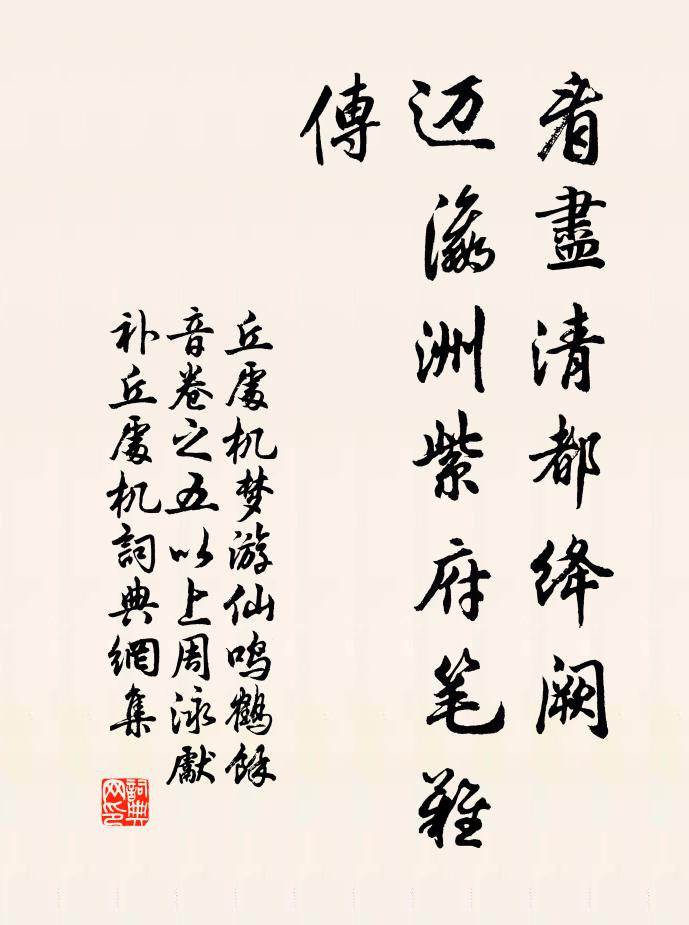 看盡清都绛阙
迈瀛洲紫府笔难
傳
丘處机梦游仙鸣鹤餘
音卷之五以上周泳獻
补丘處机詞典網集
詞典
网印